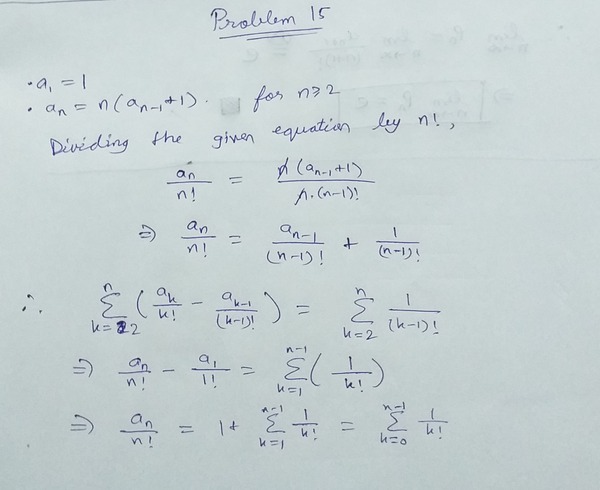 Problem 15
• a₁ = 1
• aₙ = n(aₙ₋₁+1). for n≥2
Dividing the given equation by n!,
aₙ/n! = n(aₙ₋₁+1)/n.(n-1)!
⇒ aₙ/n! = aₙ₋₁/(n-1)! + 1/(n-1)!
∴ Σ_{k=2}^{n} (aₖ/k! - aₖ₋₁/(k-1)!) = Σ_{k=2}^{n} 1/(k-1)!
⇒ aₙ/n! - a₁/1! = Σ_{k=1}^{n-1} (1/k!)
⇒ aₙ/n! = 1+ Σ_{k=1}^{n-1} 1/k! = Σ_{k=0}^{n-1} 1/k!